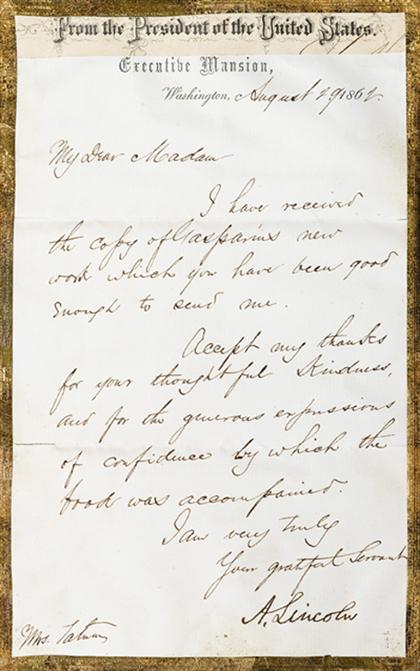 From the President of the United States.
Executive Mansion,
Washington, August 29 1862.
My Dear Madam
I have received
the copy of Gasparin's new
work which you have been good
enough to send me.
Accept my thanks
for your thoughtful kindness,
and for the generous expressions
of confidence by which the
book was accompanied.
I am very truly
Your grateful Servant
A. Lincoln
Mrs.